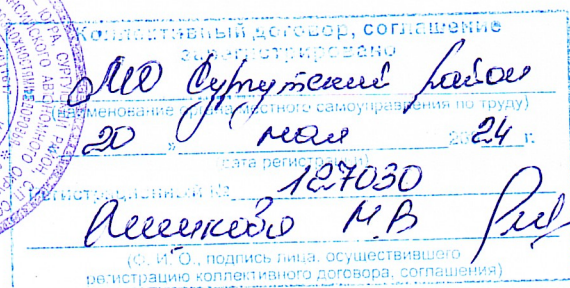 Коллективный договор, соглашение
зарегистрировано
МО Сургутский район
(наименование органа местного самоуправления по труду)
20 » мая 2024 г.
(дата регистрации)
Регистрационный № 127030
М.В
(Ф. И. О., подпись лица, осуществившего
регистрацию коллективного договора, соглашения)